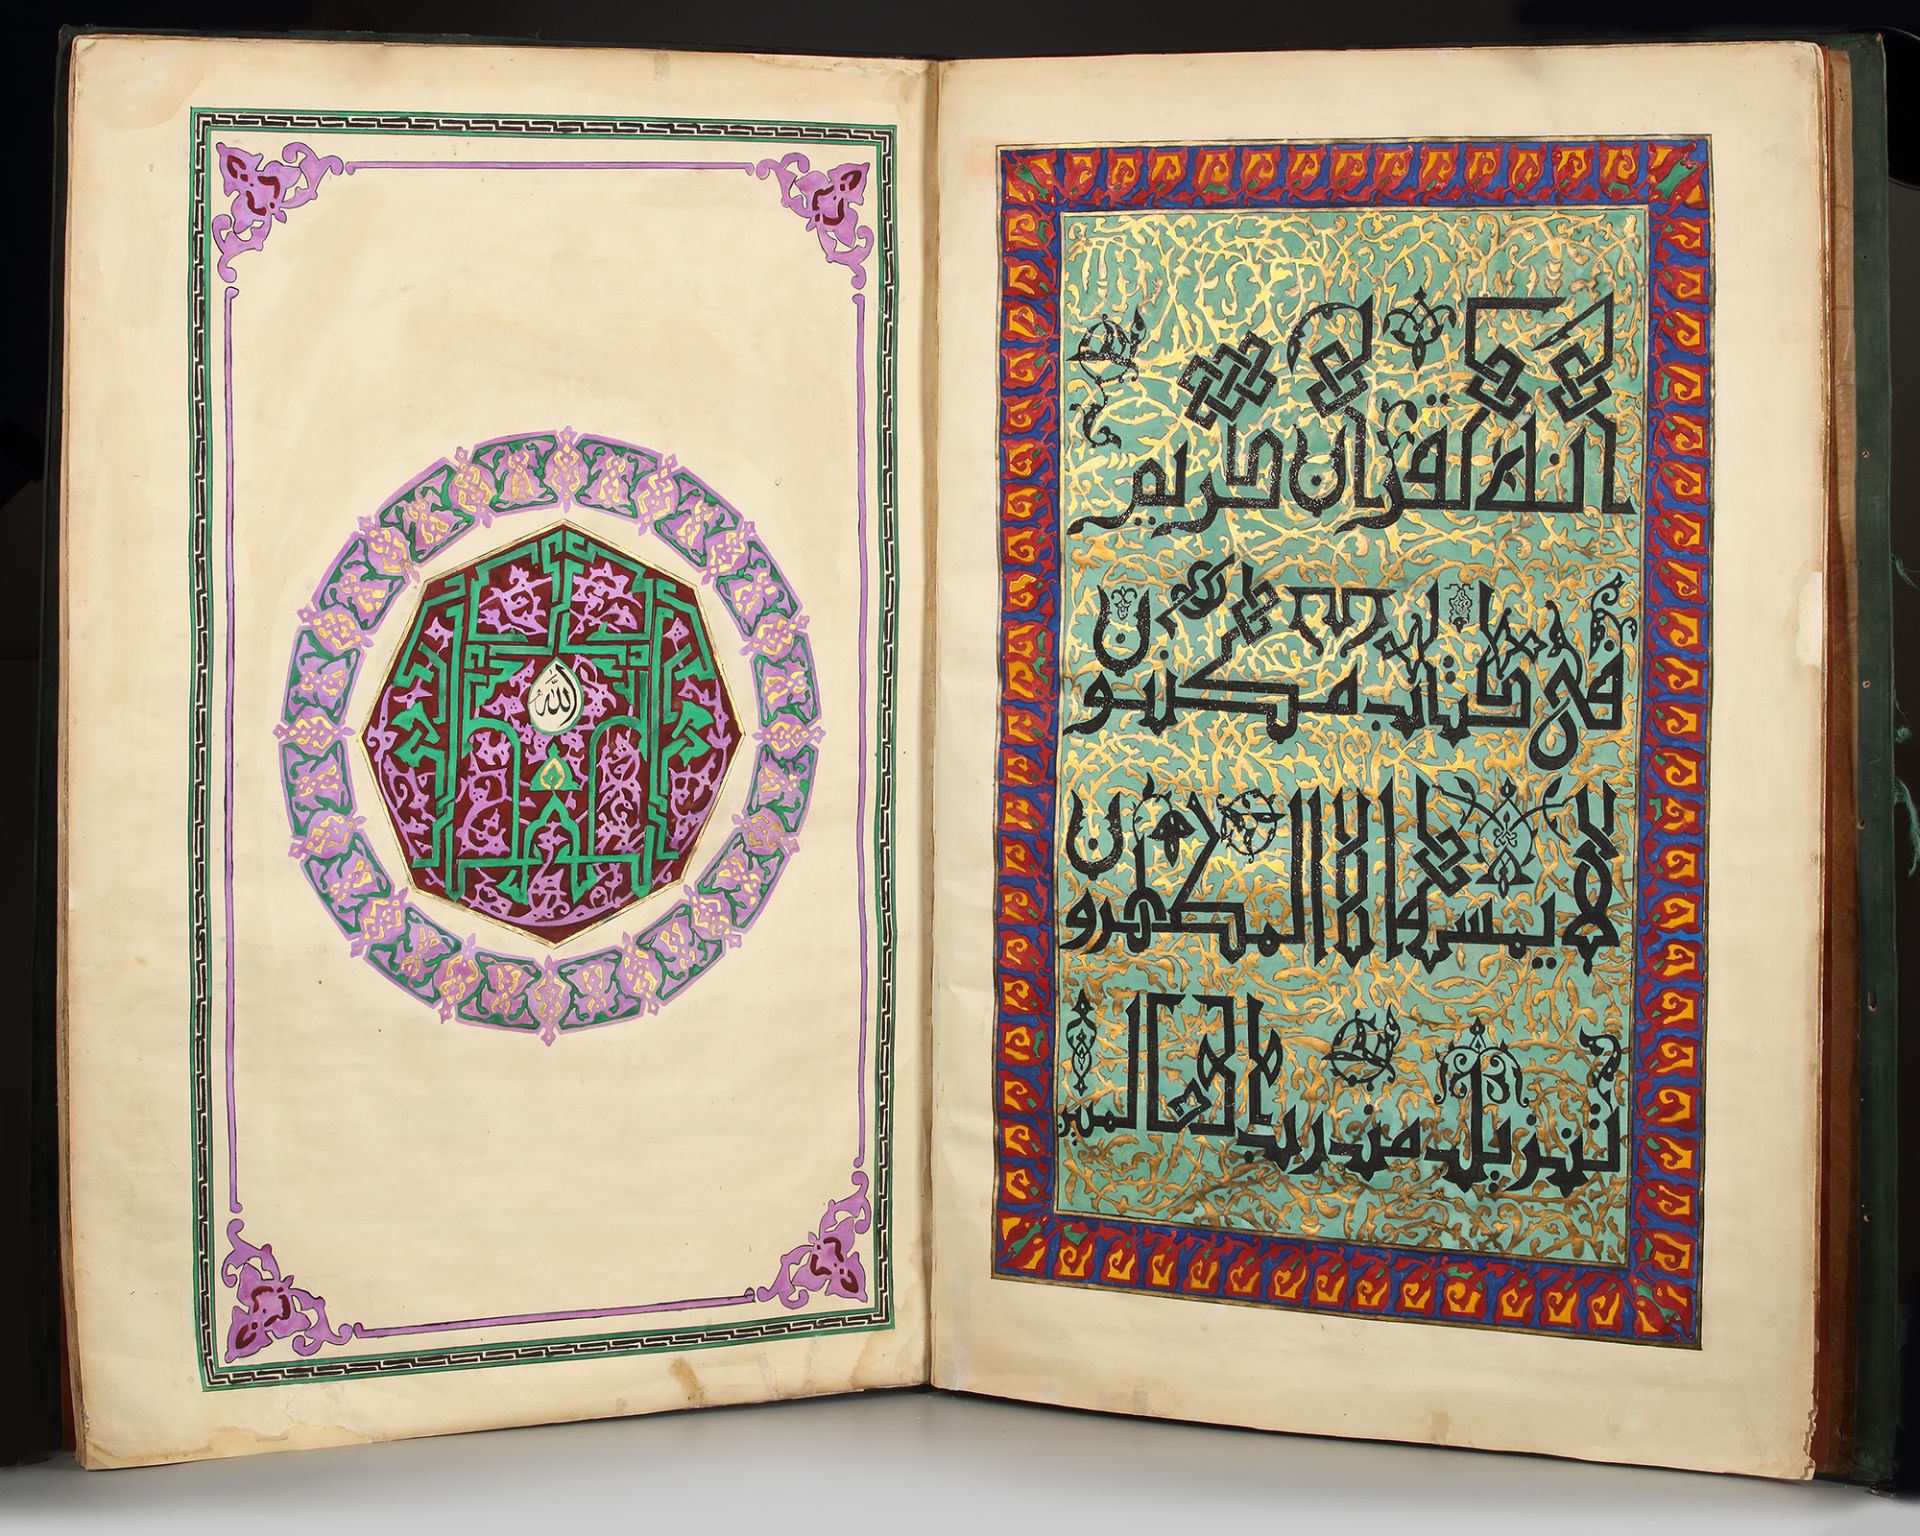 انه لقرآن كريم
في كتاب مكنون
لا يمسه الا المطهرون
تنزيل من رب العالمين
الله